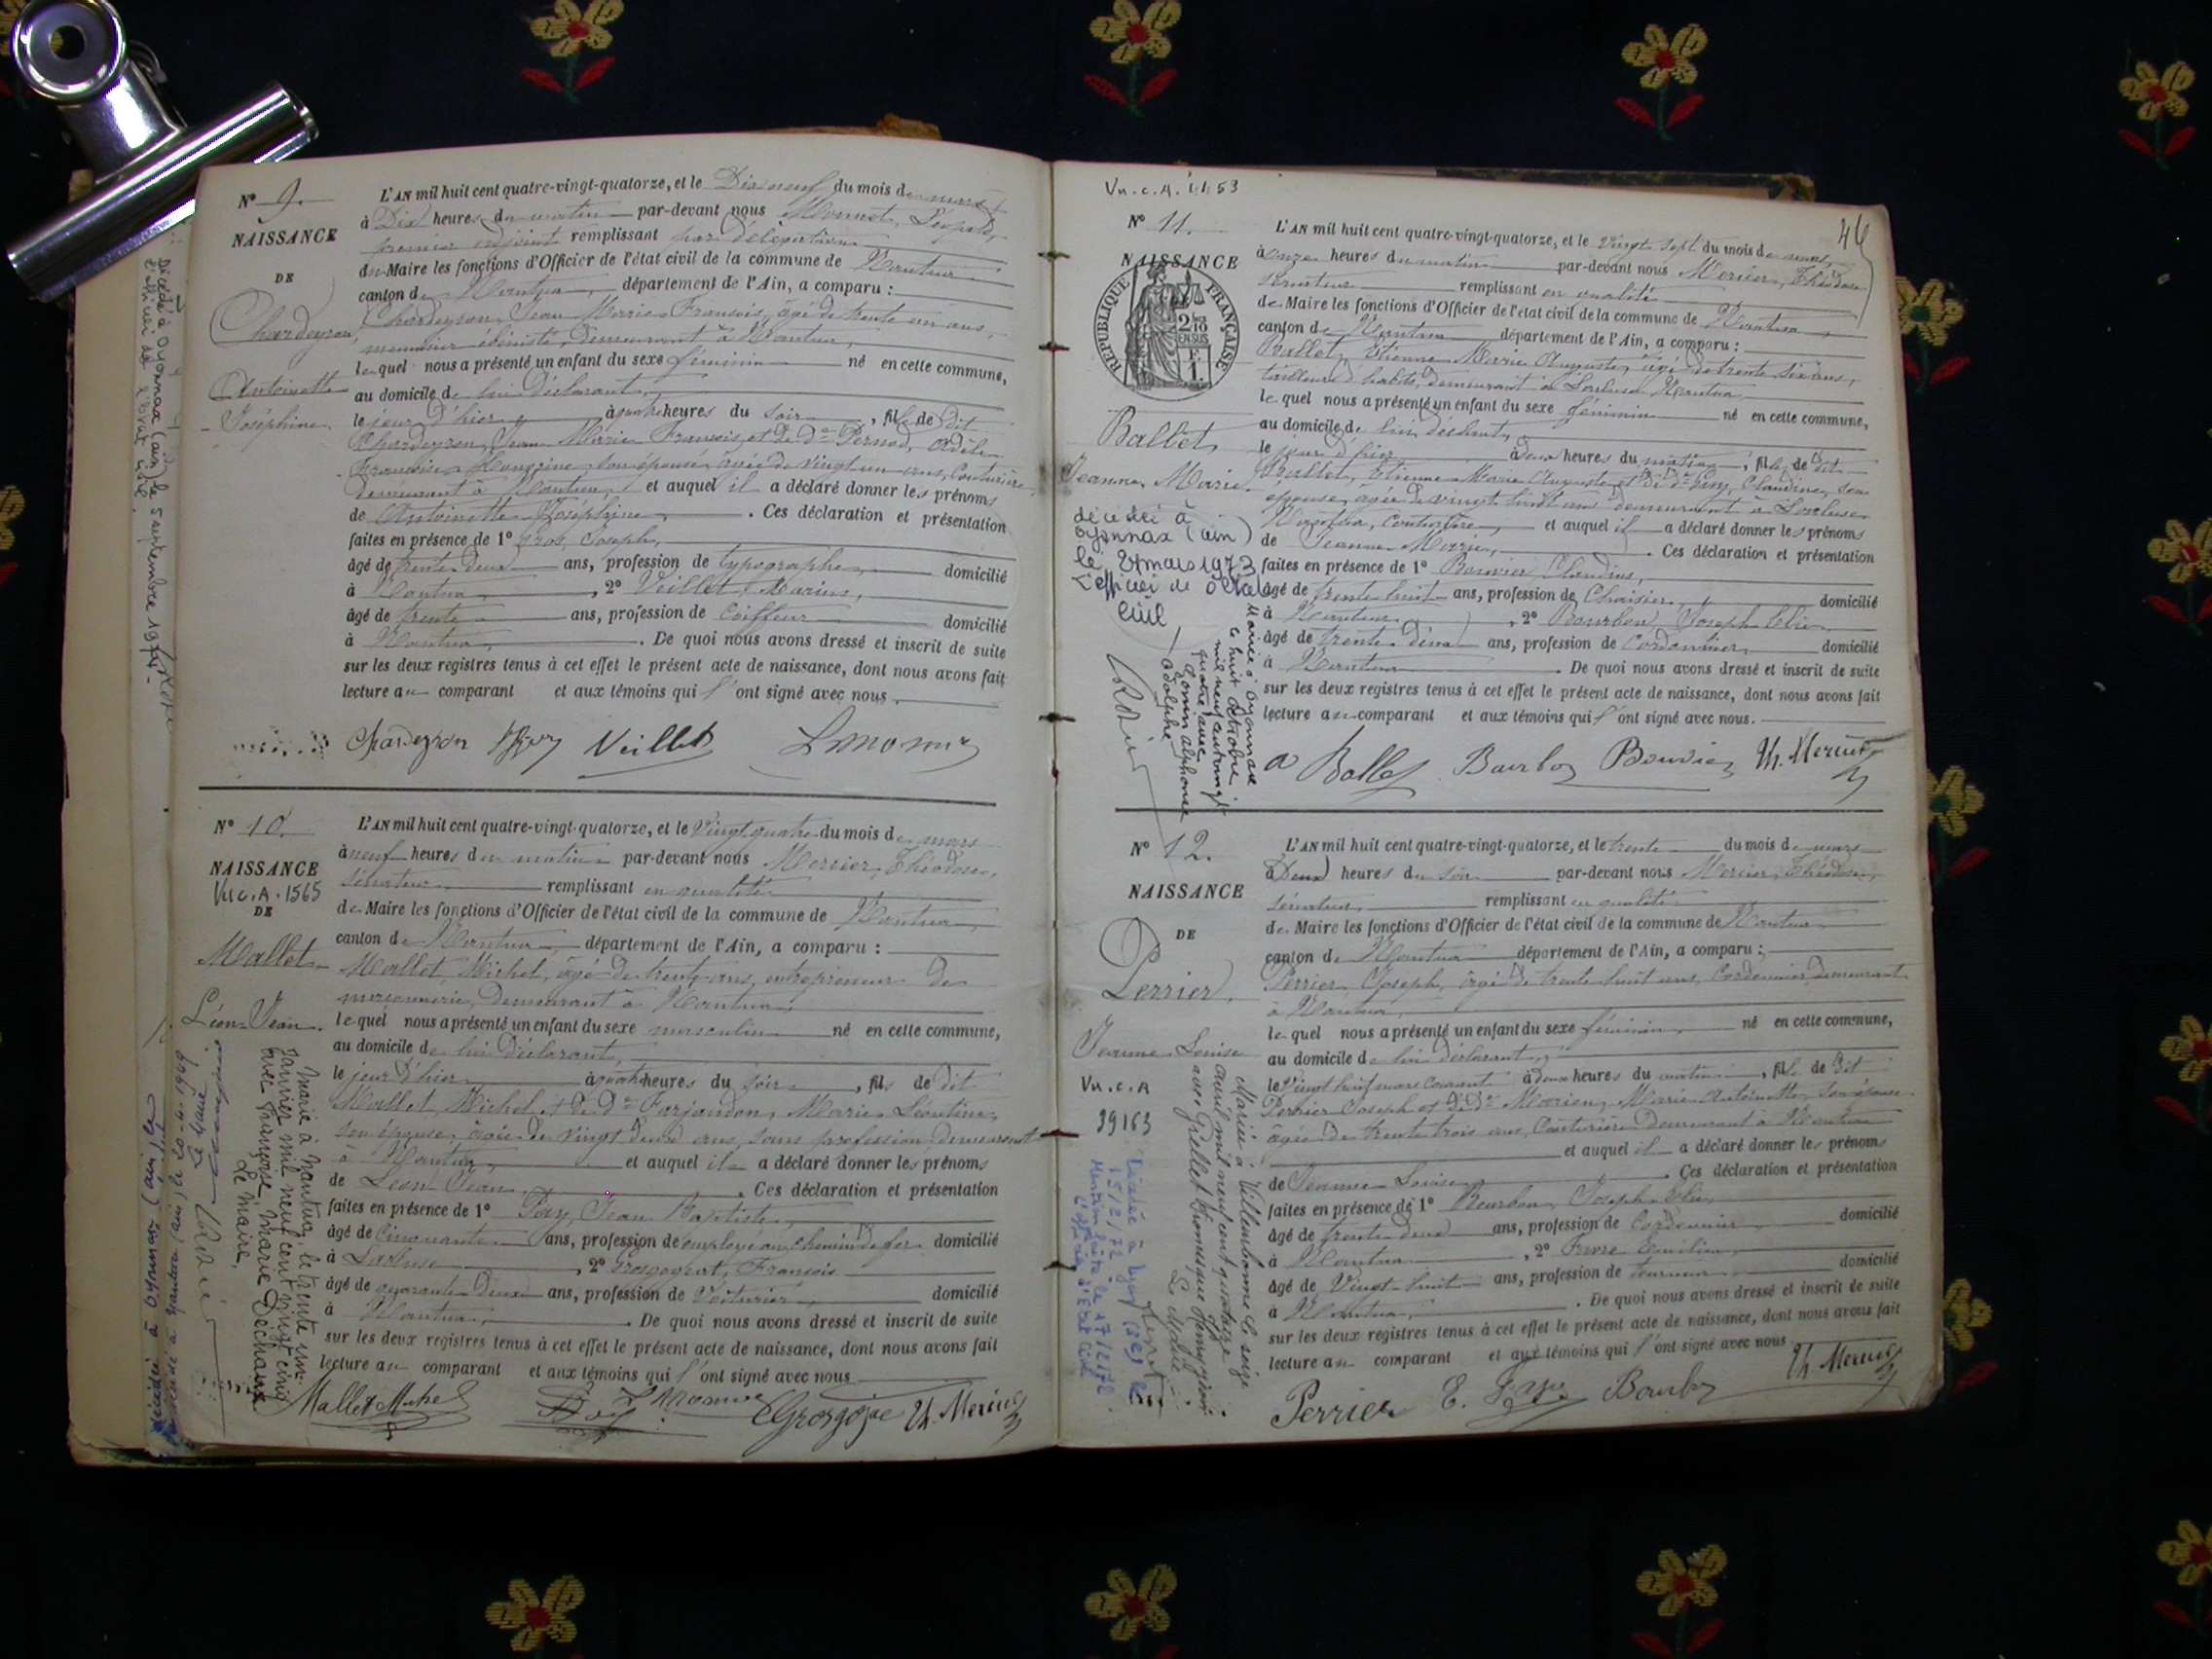 N° 9.
NAISSANCE
DE
Chardeyron
Antoinette
Joséphine.
L'AN mil huit cent quatre-vingt-quatorze, et le Dix neuf du mois de mars
à Dix heures du matin par-devant nous Monnet, Léopold,
premier adjoint remplissant par délégation
du Maire les fonctions d'Officier de l'état civil de la commune de Nantua
canton de Nantua, département de l'Ain, a comparu :
Chardeyron, Jean Marie François, âgé de trente un ans,
menuisier ébéniste, demeurant à Nantua,
lequel nous a présenté un enfant du sexe féminin né en cette commune,
au domicile de lui déclarant,
le jour d'hier, à quatre heures du soir, fille de dit
Chardeyron, Jean Marie François et de de Pernod, Adèle
Françoise son épouse, âgée de vingt un ans, couturière
demeurant à Nantua, et auquel il a déclaré donner les prénoms
de Antoinette Joséphine, . Ces déclaration et présentation
faites en présence de 1° Joseph,
âgé de trente deux ans, profession de typographe, domicilié
à Nantua, 2° Veillet, Marius,
âgé de trente ans, profession de coiffeur domicilié
à Nantua . De quoi nous avons dressé et inscrit de suite
sur les deux registres tenus à cet effet le présent acte de naissance, dont nous avons fait
lecture au comparant et aux témoins qui l'ont signé avec nous.
Chardeyron Veillet
Décédé à Oyonnax (ain) le 5 septembre
L'officier de l'état civil
N° 10.
NAISSANCE
Vu.c.A. 1565
DE
Mallet
Léon Jean.
L'AN mil huit cent quatre-vingt-quatorze, et le Vingt quatre du mois de mars
à neuf heures du matin par-devant nous Mercier, Théodore,
sénateur remplissant en qualité
de Maire les fonctions d'Officier de l'état civil de la commune de Nantua
canton de Nantua, département de l'Ain, a comparu :
Mallet Michel, âgé de trente ans, entrepreneur de
maçonnerie, demeurant à Nantua,
lequel nous a présenté un enfant du sexe masculin né en cette commune,
au domicile de lui déclarant,
le jour d'hier à quatre heures du soir, fils de dit
Mallet, Michel et de de Farjaudon, Marie Léontine,
son épouse, âgée de vingt deux ans, sans profession, demeurant
à Nantua, et auquel il a déclaré donner les prénoms
de Léon Jean, . Ces déclaration et présentation
faites en présence de 1° Jean Baptiste,
âgé de cinquante ans, profession de employé au chemin de fer domicilié
à , 2° François
âgé de quarante deux ans, profession de voiturier, domicilié
à Nantua, . De quoi nous avons dressé et inscrit de suite
sur les deux registres tenus à cet effet le présent acte de naissance, dont nous avons fait
lecture au comparant et aux témoins qui l'ont signé avec nous
Mallet Michel Th. Mercier
Marié à Nantua, le trente un
janvier mil neuf cent vingt cinq
avec Françoise Marie Dechaux
Le Maire,
décédé à Oyonnax (ain) le
Vu.c.A. 1153
46
N° 11.
NAISSANCE
RÉPUBLIQUE FRANÇAISE
2/10 EN SUS
F. 1.
Ballet
Jeanne Marie.
décédée à
Oyonnax (ain)
le 24 mars 1973
L'officier de l'état
civil
Mariée à Oyonnax
le huit octobre
mil neuf cent vingt
quatre avec
Gonin alphonse
adolphe
L'AN mil huit cent quatre-vingt-quatorze, et le vingt sept du mois de mars,
à onze heures du matin par-devant nous Mercier, Théodore
sénateur remplissant en qualité
de Maire les fonctions d'Officier de l'état civil de la commune de Nantua,
canton de Nantua département de l'Ain, a comparu :
Ballet, Etienne Marie Auguste, âgé de trente six ans,
tailleur d'habits, demeurant à Nantua
lequel nous a présenté un enfant du sexe féminin né en cette commune,
au domicile de lui déclarant,
le jour d'hier à deux heures du matin, fille de dit
Ballet, Etienne Marie Auguste et de de Claudine, son
épouse, âgée de vingt huit ans demeurant à
Nantua, couturière, et auquel il a déclaré donner les prénoms
de Jeanne Marie, . Ces déclaration et présentation
faites en présence de 1° Bouvier, Claudius,
âgé de trente huit ans, profession de Chaisier, domicilié
à Nantua, 2° Bourbon, Joseph Elie
âgé de trente deux ans, profession de Cordonnier, domicilié
à Nantua . De quoi nous avons dressé et inscrit de suite
sur les deux registres tenus à cet effet le présent acte de naissance, dont nous avons fait
lecture au comparant et aux témoins qui l'ont signé avec nous.
a Ballet Bourbon Bouvier Th. Mercier
N° 12.
NAISSANCE
DE
Perrier,
Jeanne Louise
Vu.c.A
39163
Mariée à Villeurbanne le seize
avril mil neuf cent quatorze
avec
Le Maire
L'AN mil huit cent quatre-vingt-quatorze, et le trente du mois de mars
à Deux heures du soir par-devant nous Mercier, Théodore,
sénateur, remplissant en qualité
de Maire les fonctions d'Officier de l'état civil de la commune de Nantua
canton de Nantua département de l'Ain, a comparu :
Perrier Joseph, âgé de trente huit ans, Cordonnier, demeurant
à Nantua,
lequel nous a présenté un enfant du sexe féminin, né en cette commune,
au domicile de lui déclarant,
le Vingt neuf mars courant à deux heures du matin, fille de dit
Perrier Joseph et de de Marion, Marie Antoinette, son épouse
âgée de trente trois ans, Couturière Demeurant à Nantua
et auquel il a déclaré donner les prénoms
de Jeanne Louise, . Ces déclaration et présentation
faites en présence de 1° Bourbon, Joseph Elie
âgé de trente deux ans, profession de Cordonnier, domicilié
à Nantua, 2° Emilien,
âgé de Vingt huit ans, profession de tourneur domicilié
à Nantua, . De quoi nous avons dressé et inscrit de suite
sur les deux registres tenus à cet effet le présent acte de naissance, dont nous avons fait
lecture au comparant et aux témoins qui l'ont signé avec nous
Perrier Bourbon Th. Mercier